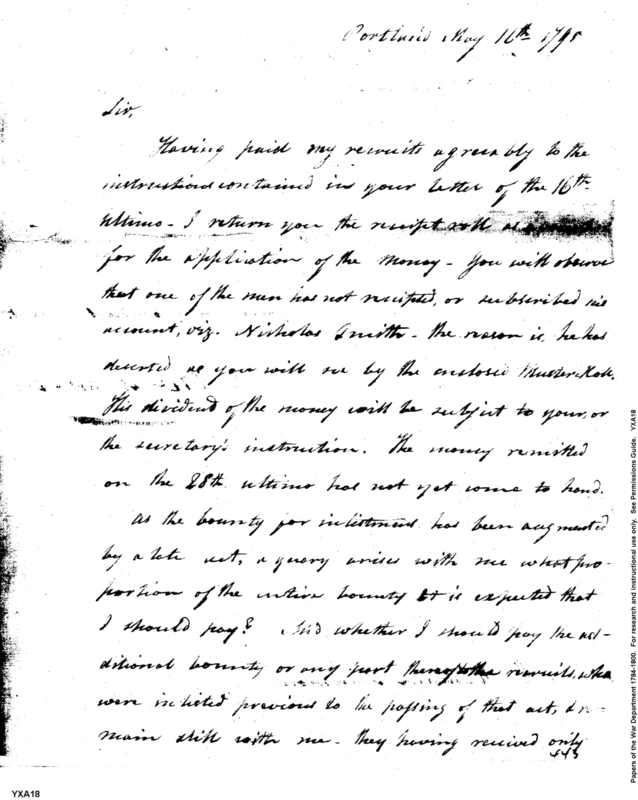 Portland May 16th 1795
Sir,
Having paid my recruits agreeably to the
instructions contained in your letter of the 16th
Ultimo - I return you the receipt roll as
for the application of the money - You will observe
that one of the men has not receipted, or subscribed his
account, viz. Nicholas Smith - the reason is, he has
deserted as you will see by the enclosed Muster-Roll.
His dividend of the money will be subject to your, or
the secretary's instruction. The money remitted
on the 28th ultimo has not yet come to hand.
As the bounty for inlistment has been augmented
by a late act, a query arises with me what pro-
portion of the entire bounty it is expected that
I should pay? And whether I should pay the ad-
ditional bounty or any part thereof to the recruits, who
were inlisted previous to the passing of that act, & re-
main still with me - they having received only
443
YXA18
Papers of the War Department 1784-1800. For research and instructional use only. See Permissions Guide. YXA18